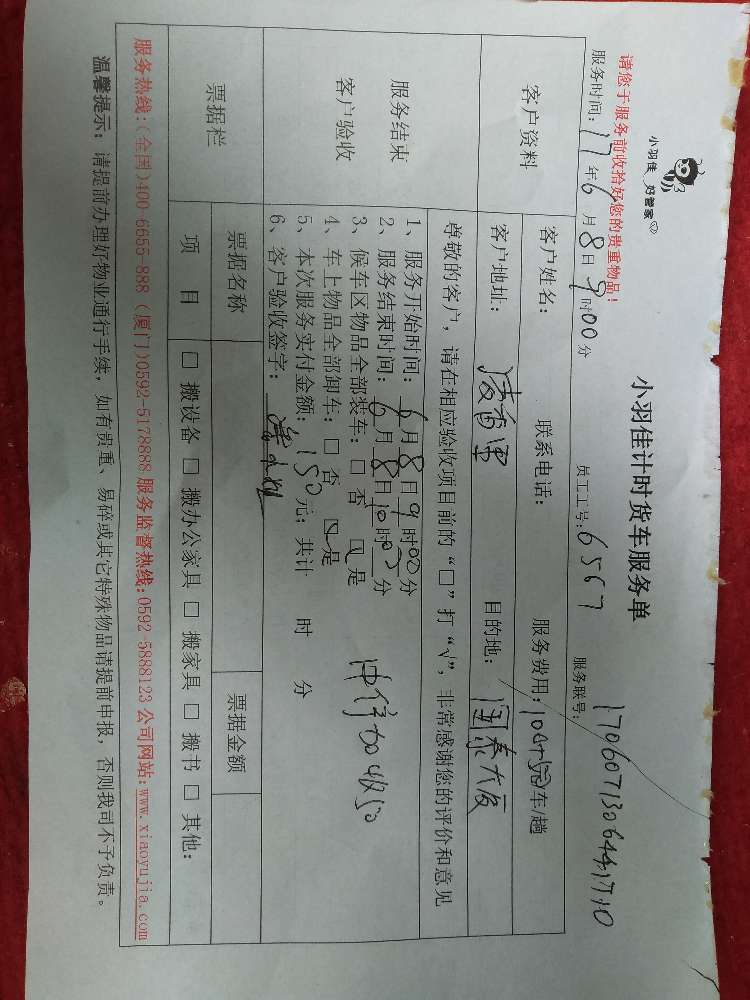 小羽佳 好管家
小羽佳计时货车服务单
请您于服务前收拾好您的贵重物品！
服务时间：17年6月8日9时00分 员工工号：6567 服务联号：
客户资料
客户姓名： 联系电话： 服务费用： 车/趟
客户地址： 目的地：国泰大厦
尊敬的客户，请在相应验收项目前的“□”打“√”，非常感谢您的评价和意见
服务结束
客户验收
1、服务开始时间：6月8日9时00分
2、服务结束时间：6月8日10时00分
3、候车区物品全部装车：□ 否 ☑ 是
4、车上物品全部卸车：□ 否 ☑ 是
5、本次服务实付金额：150元；共计 时 分
6、客户验收签字：
票据栏
票据名称 票据金额
项 目 □ 搬设备 □ 搬办公家具 □ 搬家具 □ 搬书 □ 其他：
服务热线：(全国)400-6655-888 (厦门)0592-5178888 服务监督热线：0592-5888123 公司网站：www.xiaoyujia.com
温馨提示：请提前办理好物业通行手续，如有贵重、易碎或其它特殊物品请提前申报，否则我司不予负责。